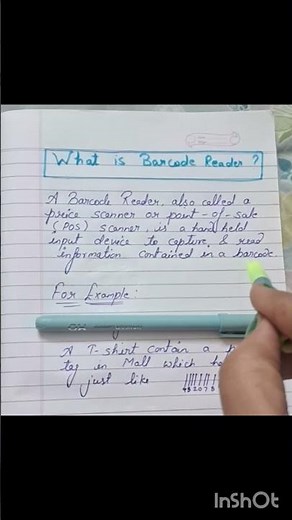 What is Barcode Reader ?
A Barcode Reader, also called a
price scanner or point-of-sale
(POS) scanner, is a hand held
input device to capture & read
information contained in a barcode.
For Example :
A T-shirt contain a
tag in Mall which
just like
InShOt